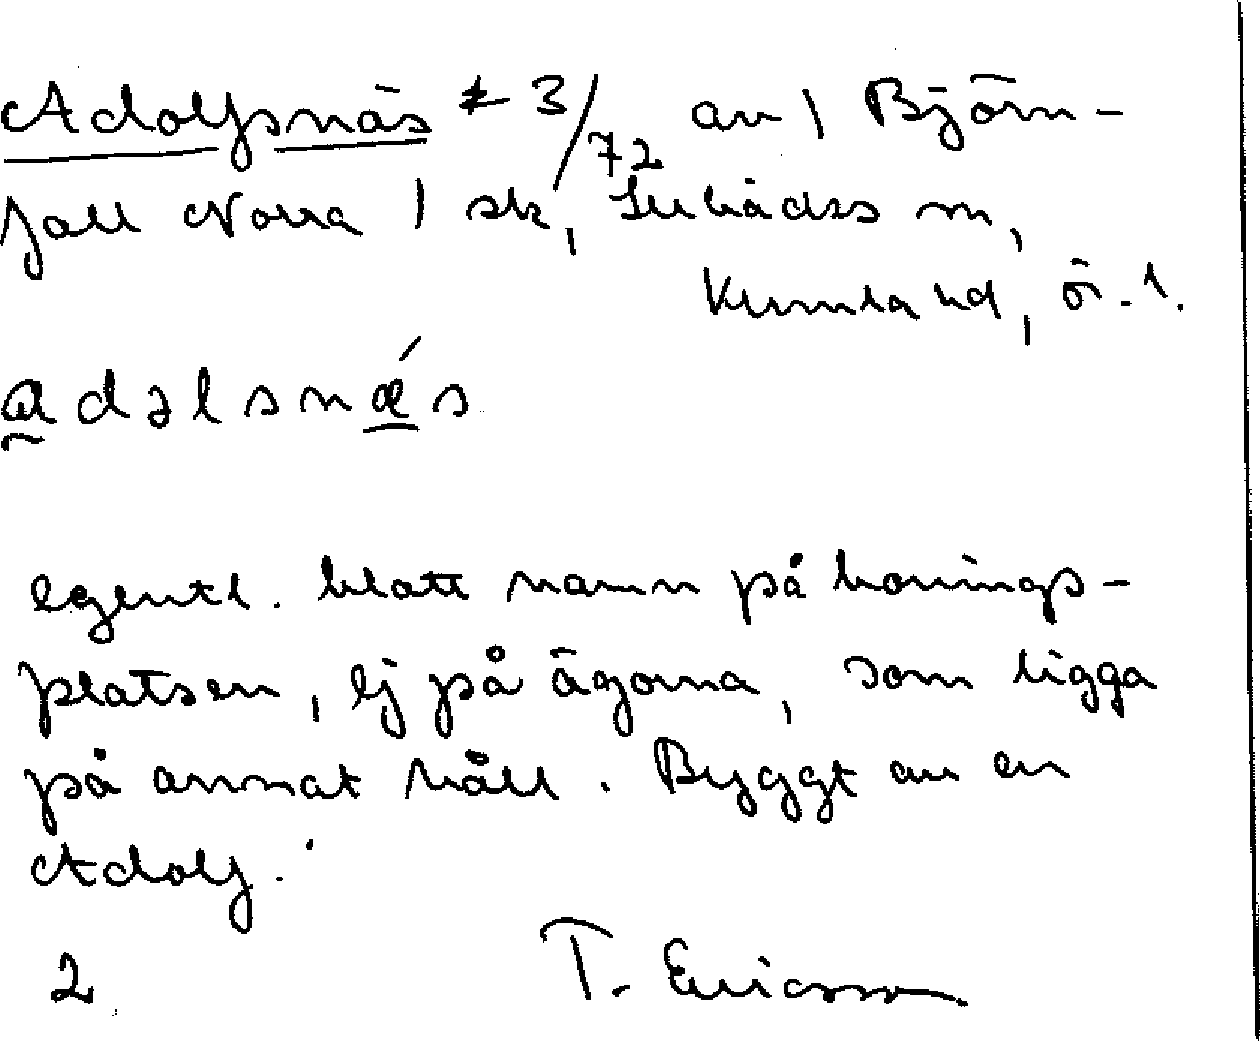 Adolfsnäs ≠ 3/72 av 1 Björn-
fall Norra 1 sk, Trehörds sn,
Kumla hd, ög. l.
adəlsnǽs
egentl. blott namn på bonings-
platsen, ej på ägorna, som ligga
på annat håll. Byggt av en
Adolf.
2 T. Ericsson